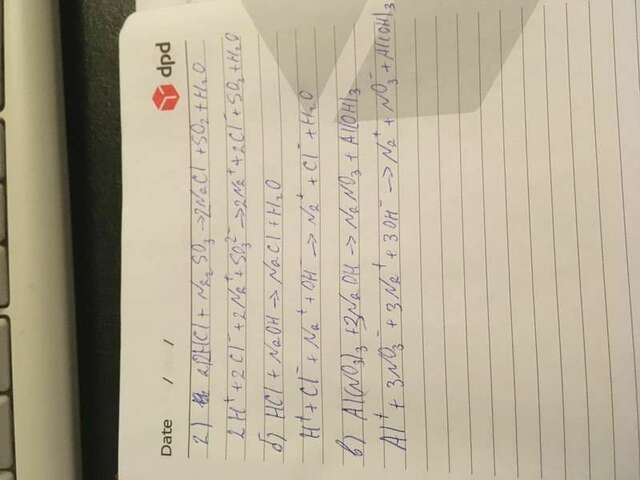 dpd
Date / /
2) а) 2HCl + Na₂SO₃ → 2NaCl + SO₂ + H₂O
2H⁺ + 2Cl⁻ + 2Na⁺ + SO₃²⁻ → 2Na⁺ + 2Cl⁻ + SO₂ + H₂O
б) HCl + NaOH → NaCl + H₂O
H⁺ + Cl⁻ + Na⁺ + OH⁻ → Na⁺ + Cl⁻ + H₂O
в) Al(NO₃)₃ + 3NaOH → NaNO₃ + Al(OH)₃
Al⁺ + 3NO₃⁻ + 3Na⁺ + 3OH⁻ → Na⁺ + NO₃⁻ + Al(OH)₃